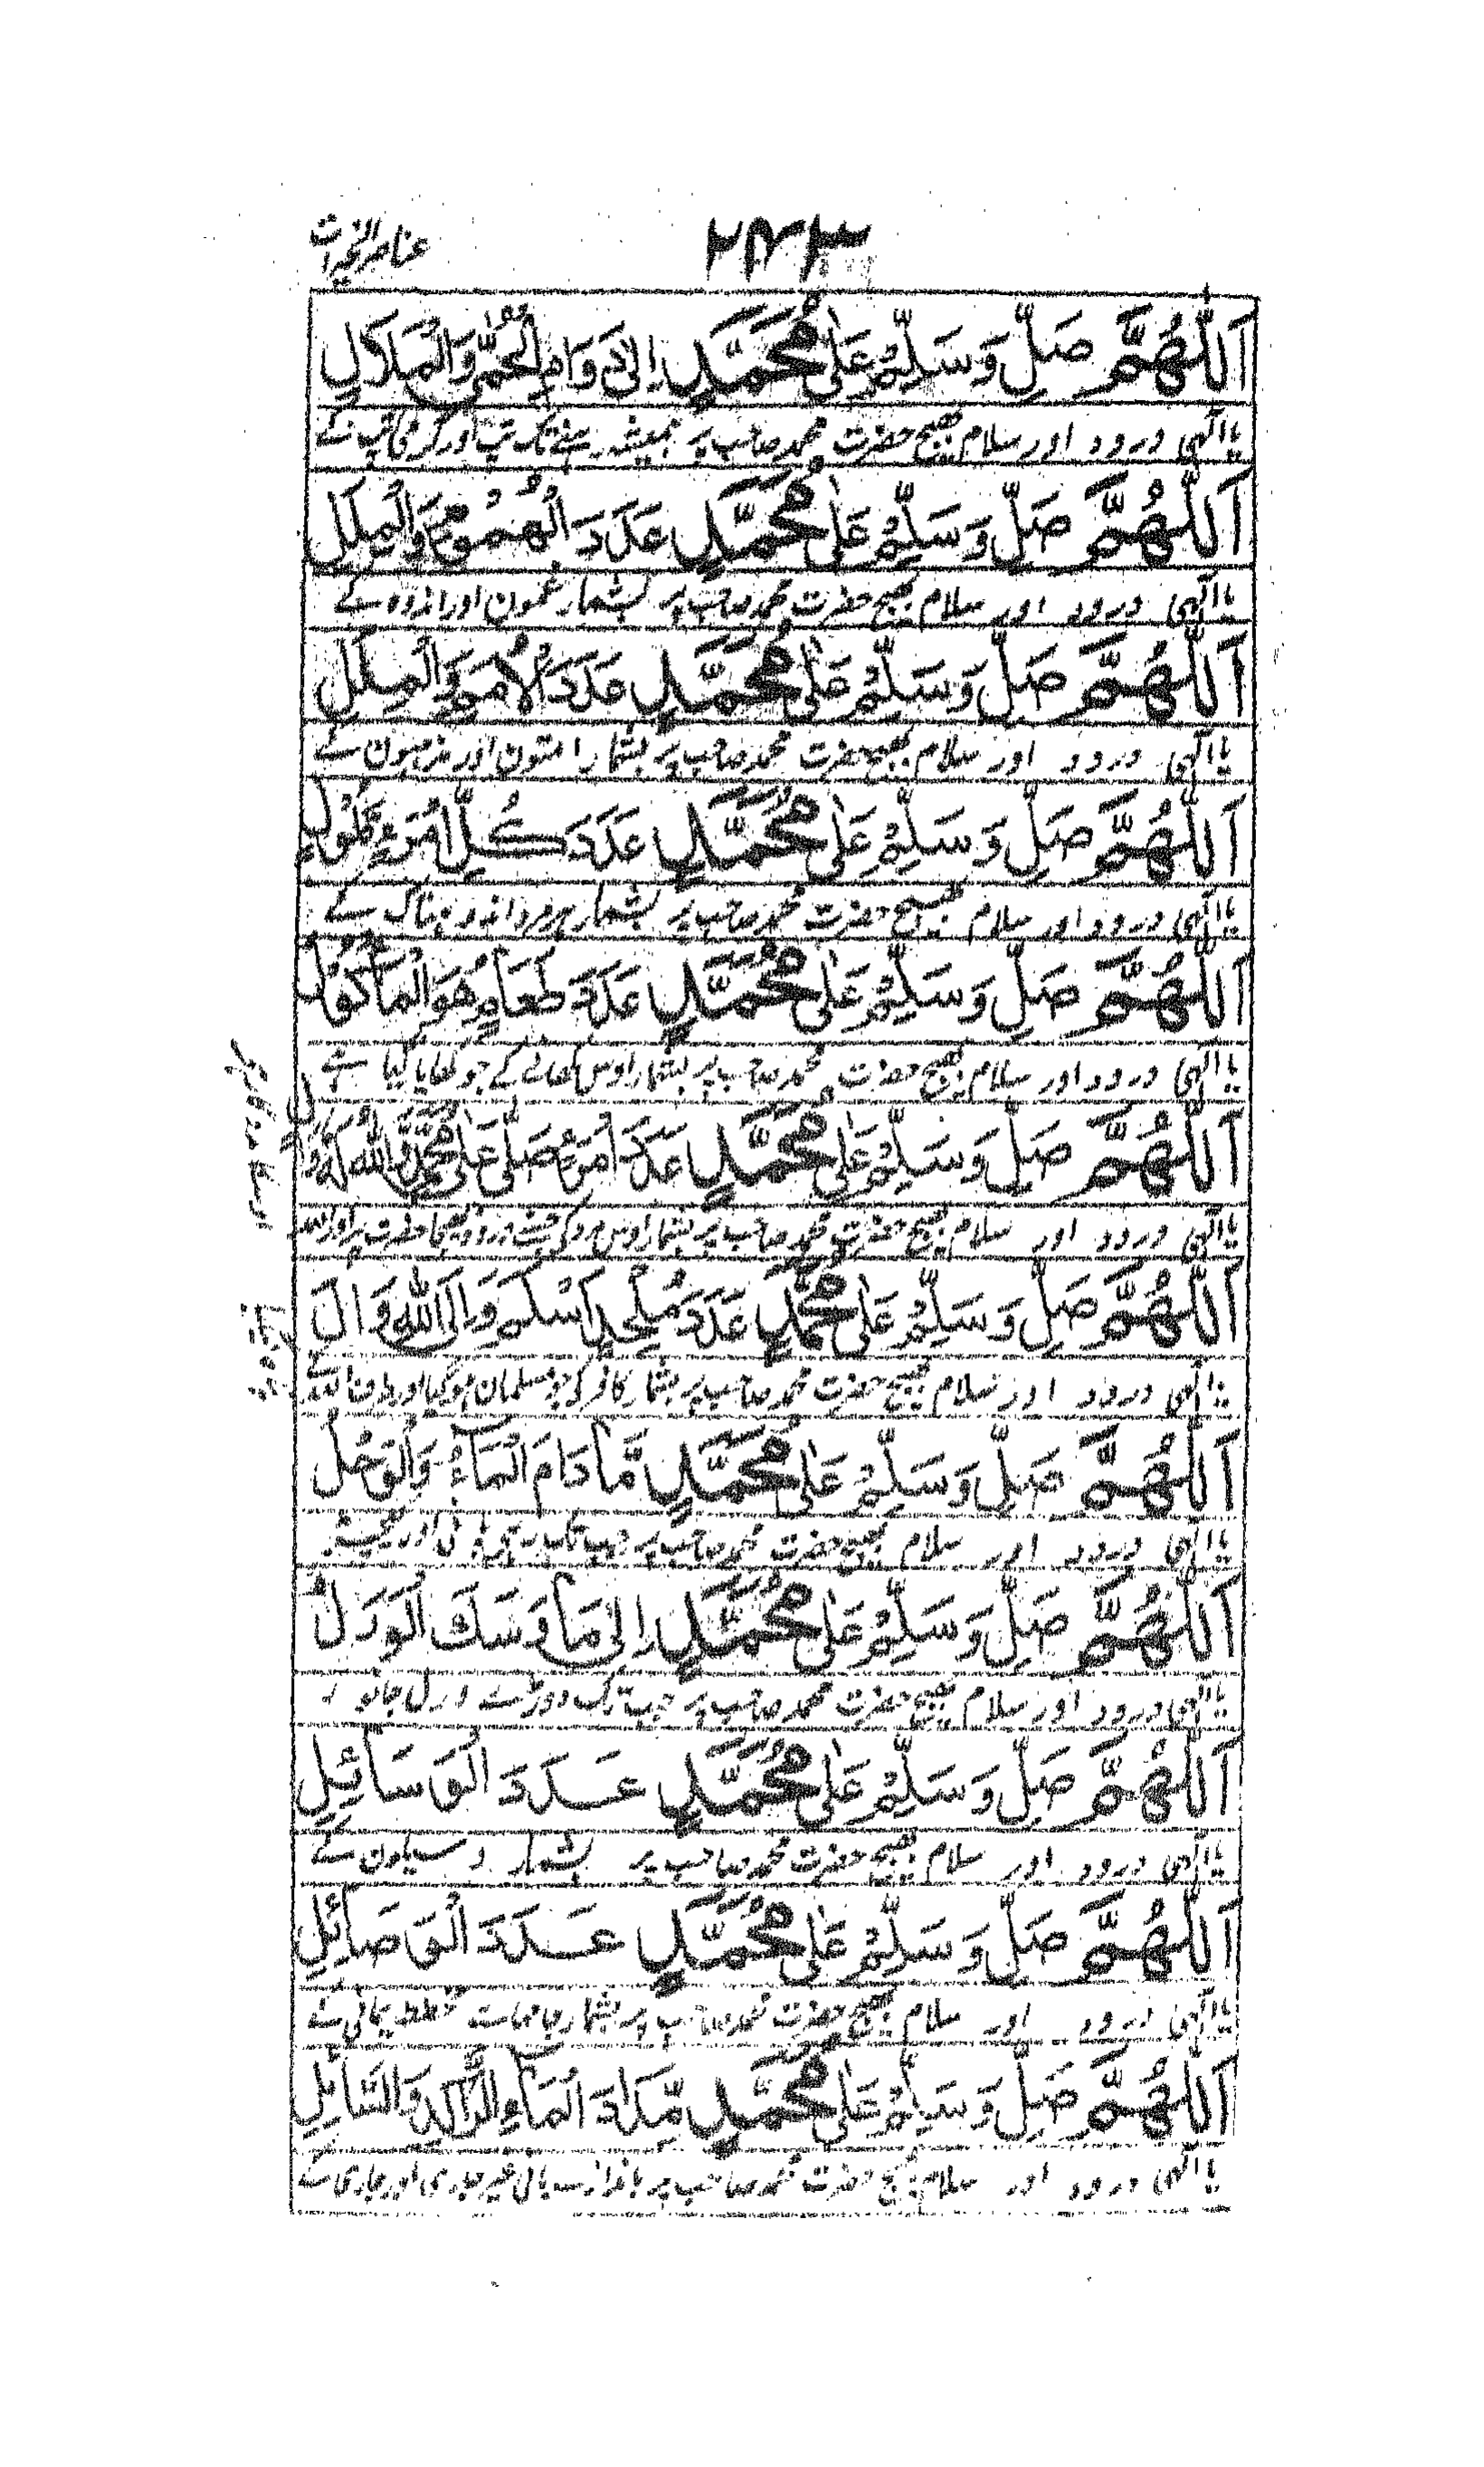 عناصر الخیرات
۲۸۳
اَللّٰهُمَّ صَلِّ وَسَلِّمْ عَلٰى مُحَمَّدٍ اِلٰى دَوَامِ الْحُمّٰى وَالْمَلَالِ
یا الٰہی درود اور سلام بھیج حضرت محمد صاحب پر ہمیشہ رہنے تک تپ اور گرمی تپ کے
اَللّٰهُمَّ صَلِّ وَسَلِّمْ عَلٰى مُحَمَّدٍ عَدَدَ الْهُمُوْمِ وَالْمَلَلِ
یا الٰہی درود اور سلام بھیج حضرت محمد صاحب پر بشمار غمون اور اندوہ کے
اَللّٰهُمَّ صَلِّ وَسَلِّمْ عَلٰى مُحَمَّدٍ عَدَدَ الْاُمَمِ وَالْمِلَلِ
یا الٰہی درود اور سلام بھیج حضرت محمد صاحب پر بشمار امتون اور مذہبون کے
اَللّٰهُمَّ صَلِّ وَسَلِّمْ عَلٰى مُحَمَّدٍ عَدَدَ كُلِّ امْرَءٍ مَّلُوْلٍ
یا الٰہی درود اور سلام بھیج حضرت محمد صاحب پر بشمار ہر مرد اندوہناک کے
اَللّٰهُمَّ صَلِّ وَسَلِّمْ عَلٰى مُحَمَّدٍ عَدَدَ طَعَامٍ هُوَ الْمَأْكُوْلُ
یا الٰہی درود اور سلام بھیج حضرت محمد صاحب پر بشمار اوس کھانے کے جو کھایا گیا ہے
اَللّٰهُمَّ صَلِّ وَسَلِّمْ عَلٰى مُحَمَّدٍ عَدَدَ امْرَءٍ صَلّٰى عَلٰى مُحَمَّدٍ
یا الٰہی درود اور سلام بھیج حضرت محمد صاحب پر بشمار اوس مرد کو جسنے درود بھیجا حضرت پر اور
اَللّٰهُمَّ صَلِّ وَسَلِّمْ عَلٰى مُحَمَّدٍ عَدَدَ مُلْحِدٍ اَسْلَمَ وَاِلَى اللّٰهِ وَاَلَ
یا الٰہی درود اور سلام بھیج حضرت محمد صاحب پر بشمار کافر کو جو مسلمان ہو گیا اور طرف اللہ کے
اَللّٰهُمَّ صَلِّ وَسَلِّمْ عَلٰى مُحَمَّدٍ مَّا دَامَ الْمَاءُ وَالْوَحْلُ
یا الٰہی درود اور سلام بھیج حضرت محمد صاحب پر جب تک رہے پانی اور کیچڑ
اَللّٰهُمَّ صَلِّ وَسَلِّمْ عَلٰى مُحَمَّدٍ اِلٰى مَا وَسَكَ الْوَرَلُ
یا الٰہی درود اور سلام بھیج حضرت محمد صاحب پر جب تک دوڑے ورل جانور
اَللّٰهُمَّ صَلِّ وَسَلِّمْ عَلٰى مُحَمَّدٍ عَدَدَ الْوَسَائِلِ
یا الٰہی درود اور سلام بھیج حضرت محمد صاحب پر بشمار وسیلون کے
اَللّٰهُمَّ صَلِّ وَسَلِّمْ عَلٰى مُحَمَّدٍ عَدَدَ الْوَصَائِلِ
یا الٰہی درود اور سلام بھیج حضرت محمد صاحب پر بشمار جامہات مخطط یمانی کے
اَللّٰهُمَّ صَلِّ وَسَلِّمْ عَلٰى مُحَمَّدٍ مِّدَادَ الْمَاءِ الرَّاكِدِ وَالسَّائِلِ
یا الٰہی درود اور سلام بھیج حضرت محمد صاحب پر باندازے پانی غیر جاری اور جاری کے